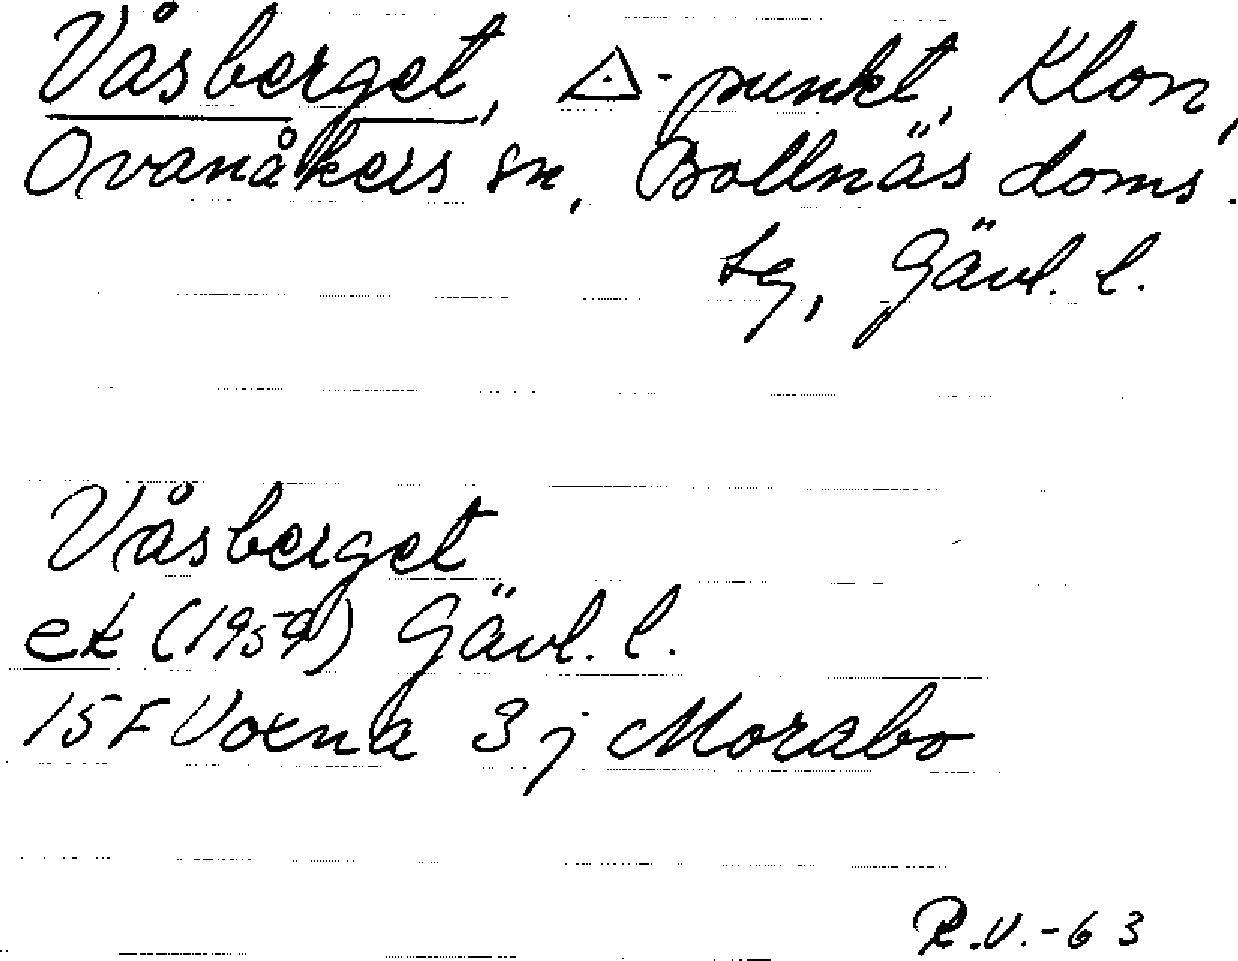 Våsberget, △-punkt, Klon,
Ovanåkers sn, Bollnäs doms.
tg, Gävl. l.
Våsberget
ek (1959) Gävl. l.
15F Voxna 3j Morabo
R.V.-63